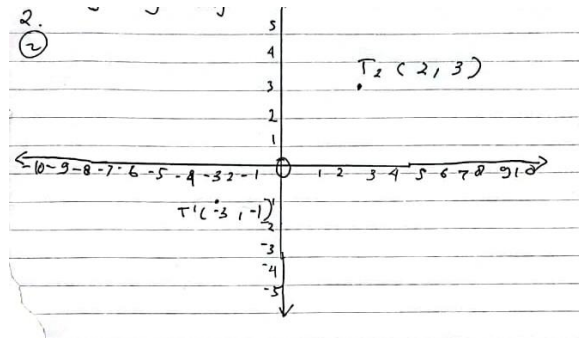 2.
2
5
4
T2 (2, 3)
3
2
1
-10 -9 -8 -7 -6 -5 -4 -3 2 -1 0 1 2 3 4 5 6 7 8 9 10
T1 (-3, -1)
-1
-2
-3
-4
-5